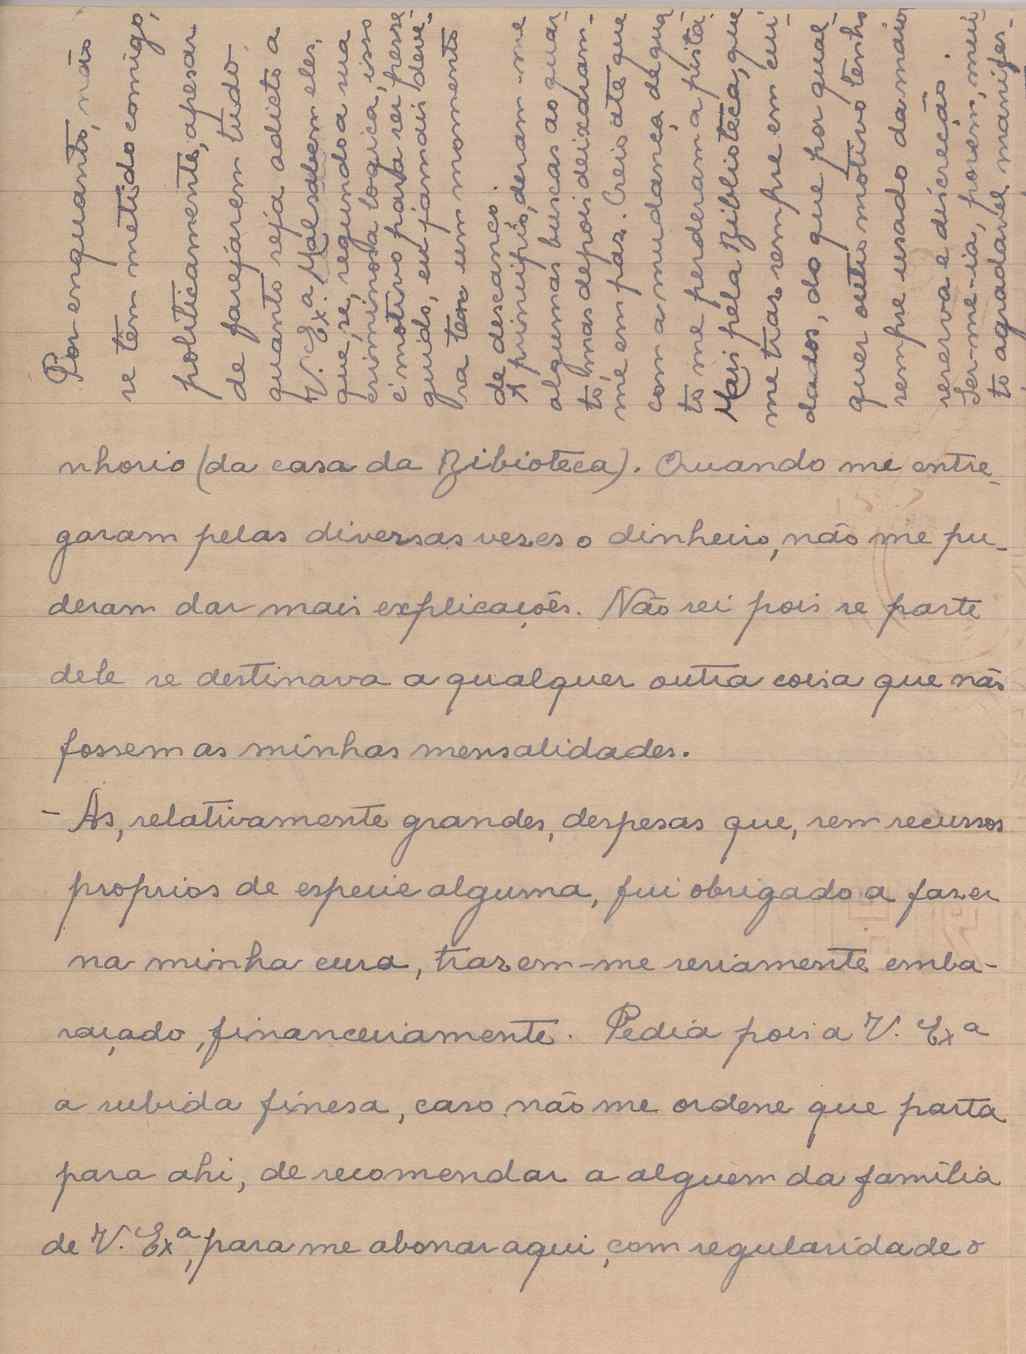 Por enquanto, não
se têm metido comigo,
politicamente, apesar
de farejarem tudo.
quanto seja adicto a
V. Ex.ª Mal sabem eles,
que, se, segundo a sua
criminosa logica, isso
é motivo para ser perse-
guido, eu jamais deve-
ra ter um momento
de descanço.
A principio, deram-me
algumas buscas ao quar-
to, mas depois deixaram-
me em paz. Creio até que
com a mudança de qua
to me perderam a pista.
Mais pela Biblioteca, que
me tras sempre em cui-
dados, do que por qual-
quer outro motivo tenho
sempre usado da maior
reserva e discreção.
Ser-me-ia, porém, mui
to agradavel manifes-
nhorio (da casa da Bibioteca). Quando me entre-
garam pelas diversas veses o dinheiro, não me pu-
deram dar mais explicações. Não sei pois se parte
dele se destinava a qualquer outra coisa que não
fossem as minhas mensalidades.
- As, relativamente grandes, despesas que, sem recursos
proprios de especie alguma, fui obrigado a faser
na minha cura, trasem-me seriamente emba-
raçado, financeiramente. Pedia pois a V. Exª
a subida finesa, caso não me ordene que parta
para ahi, de recomendar a alguem da família
de V. Exª, para me abonar aqui, com regularidade o